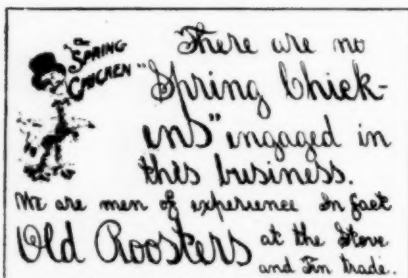 "a
SPRING
CHICKEN"
There are no
"Spring Chick-
ens" engaged in
this business.
We are men of experience In fact
Old Roosters at the Stove
and Tin trade.